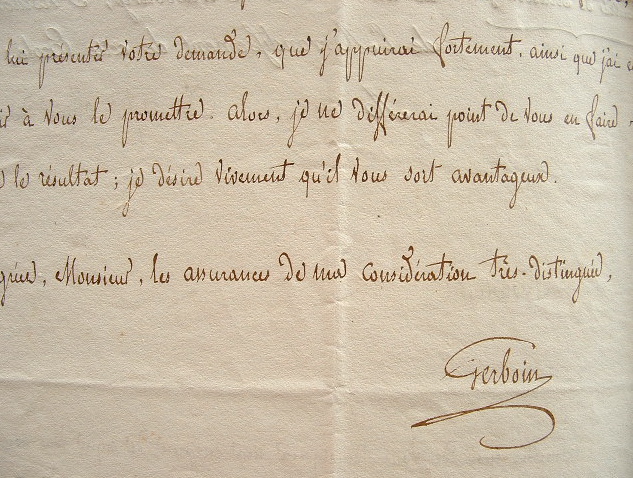 lui présenter votre demande, que j'appuirai fortement, ainsi que j'ai
à vous le promettre. alors, je ne différerai point de vous en faire
le résultat ; je désire vivement qu'il vous soit avantageux.
Monsieur, les assurances de ma considération très-distinguée,
Gerboin